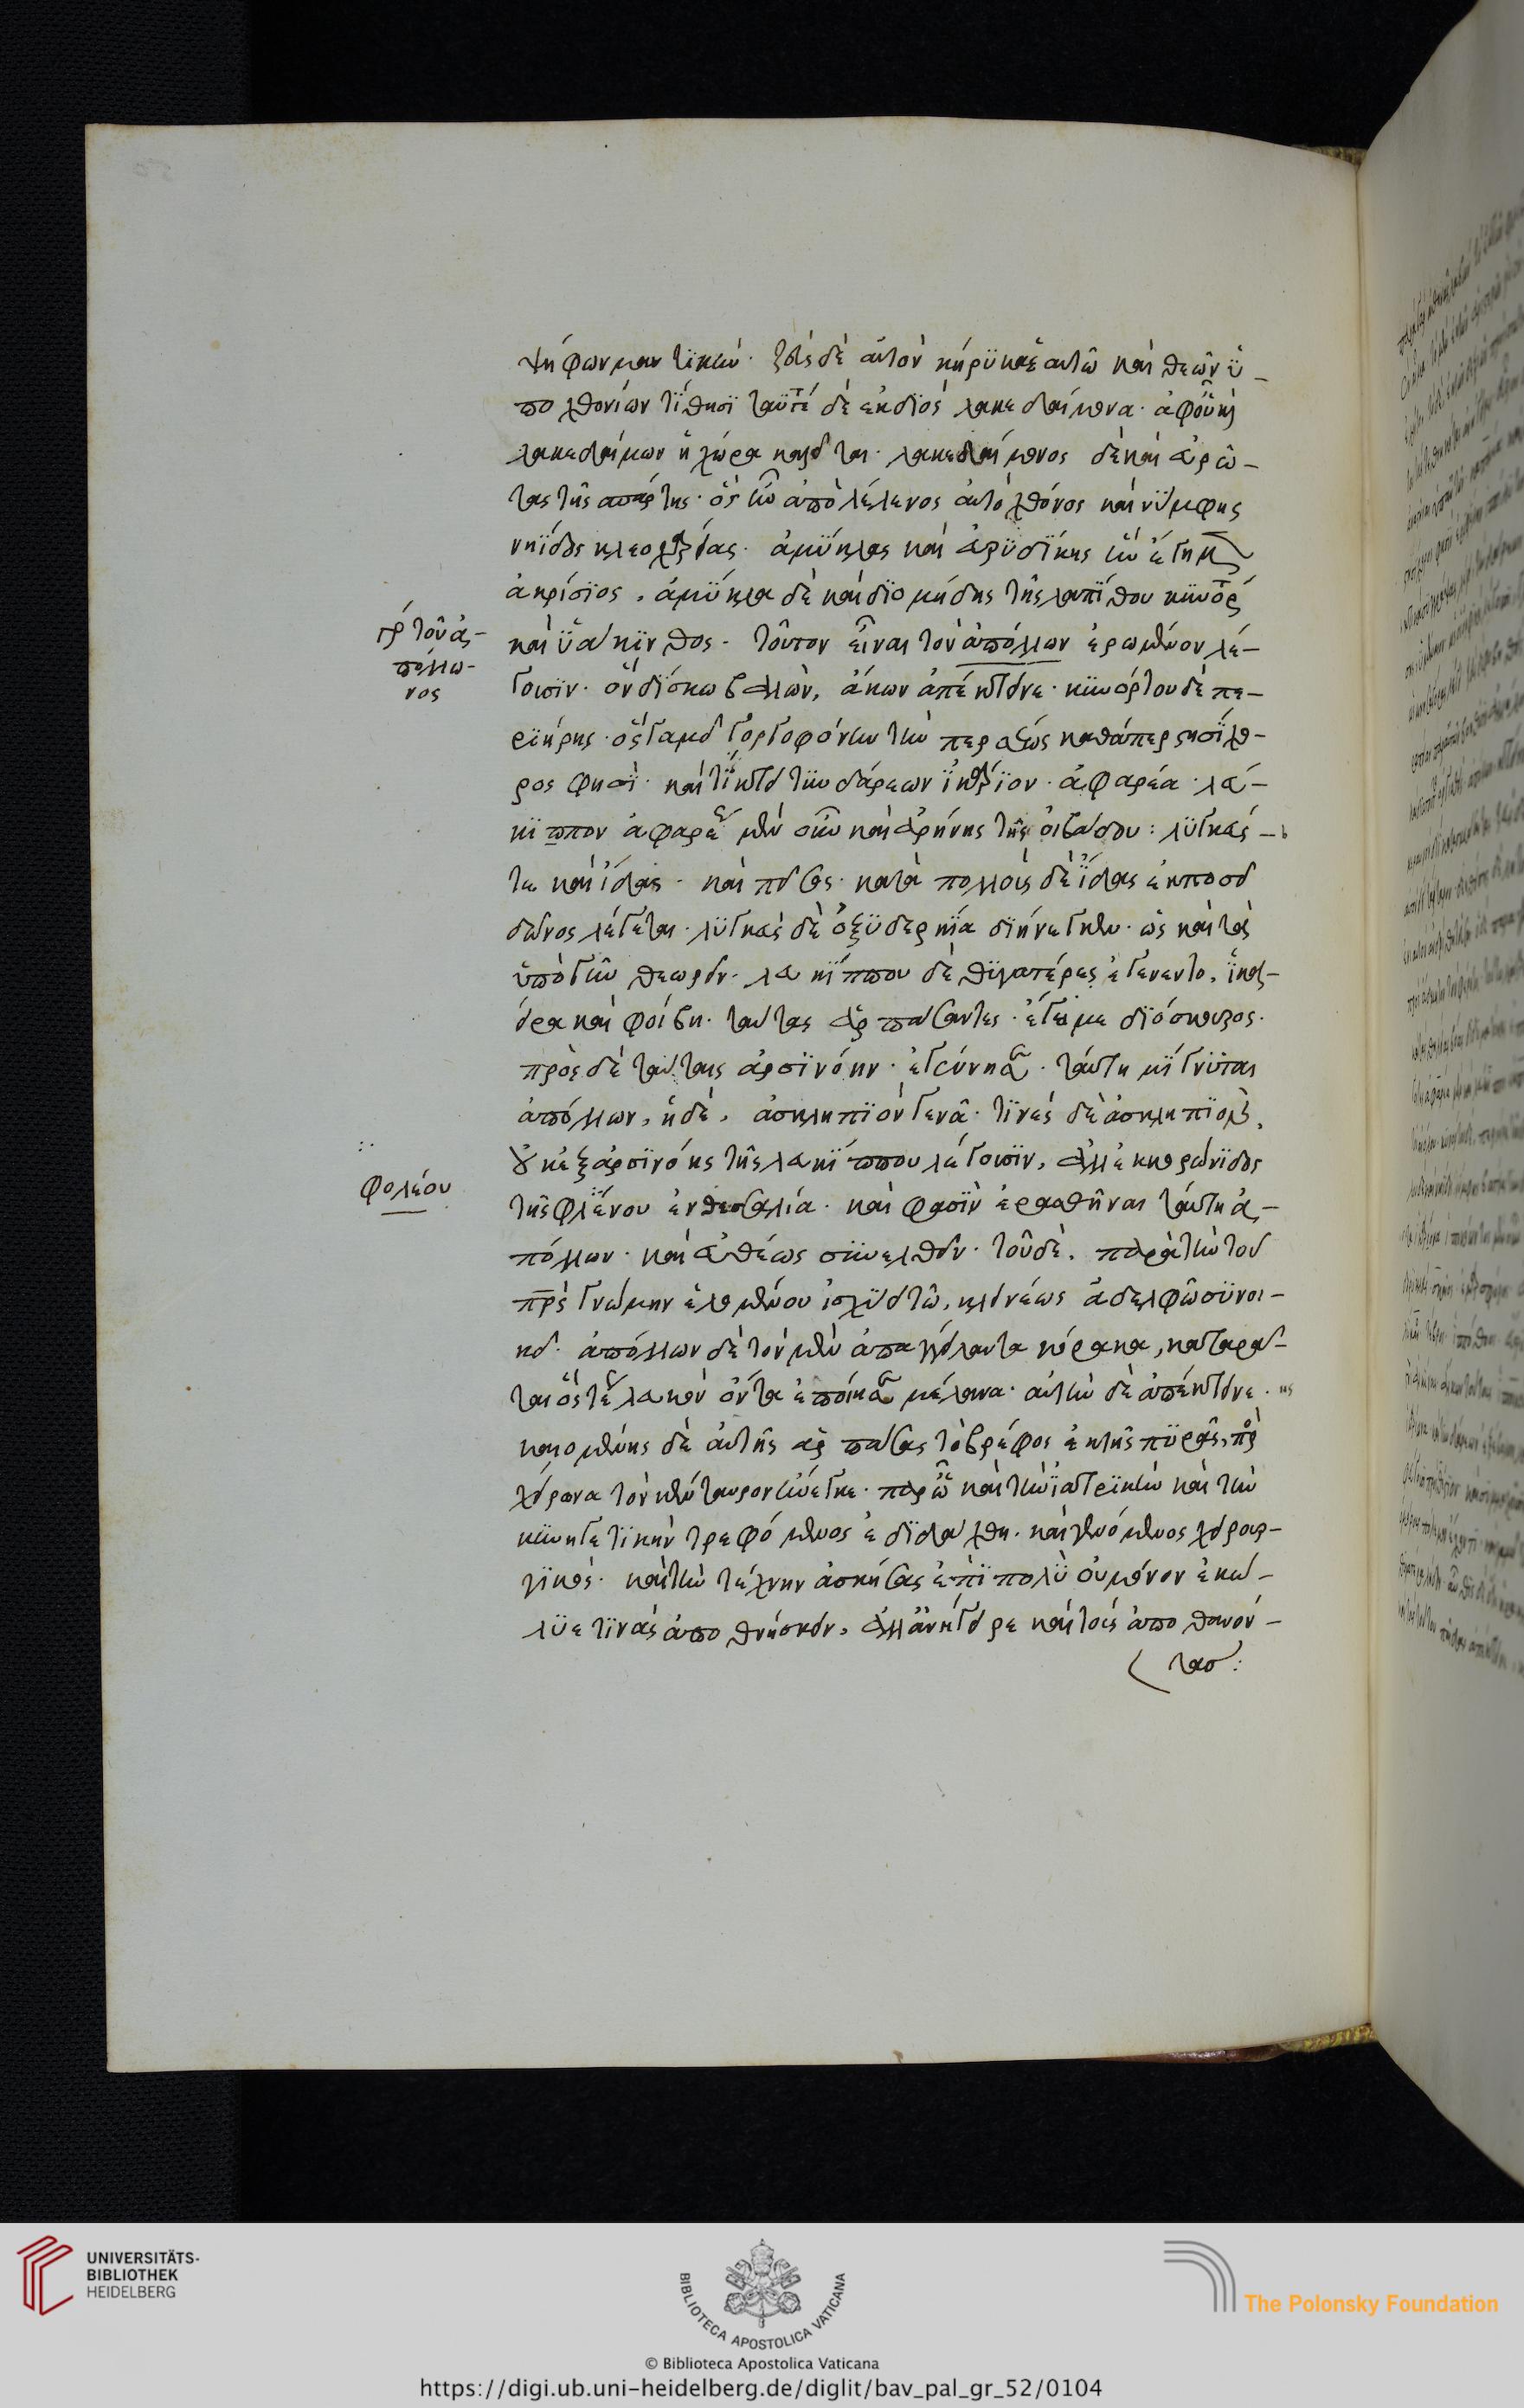 ψήφων μαντικήν· ζεὺς δὲ αὐτὸν κήρυκα ἑαυτῶ καὶ θεῶν ὑ-
πο χθονίων τίθησι ταϋγέτη δὲ ἐκ διὸς λακεδαίμονα· ἀφ οὗ καὶ
λακεδαίμων ἡ χώρα καλεῖται· λακεδαίμονος δὲ καὶ εὐρώ-
τας τῆς σπάρτης· ὃς ἦν ἀπὸ λέλεγος αὐτόχθονος καὶ νύμφης
νηΐδος κλεοχαρείας· ἀμύκλας καὶ εὐρυδίκης ἣν ἔγημεν
ἀκρίσιος. ἀμύκλα δὲ καὶ διομήδης τῆς λαπίθου κυνόρτης
καὶ ὑάκινθος· τοῦτον εἶναι τὸν ἀπόλλων ἐρωμένον λέ-
γουσιν· ὃν δίσκω βαλὼν, ἄκων ἀπέκτεινε· κυνόρτου δὲ πε-
ριήρης· ὃς γαμεῖ γοργοφόνην τὴν περσέως καθάπερ στησίχο-
ρος φησὶ· καὶ τίκτει τυνδάρεων ἰκάριον· ἀφαρέα· λεύ-
κιππον ἀφαρέως μὲν οὖν καὶ ἀρήνης τῆς οἰβάλου: λυγκεύς
τε καὶ ἴδας· καὶ πεῖσος· κατὰ πολλοὺς δὲ ἴδας ἐκ ποσει
δῶνος λέγεται· λυγκεὺς δὲ ὀξυδερκία διήνεγκεν· ὡς καὶ τὰ
ὑπὸ γῆν θεωρεῖν· λευκίππου δὲ θυγατέρες ἐγένεντο, ἱλά-
ειρα καὶ φοίβη· ταύτας ἁρπάσαντες· ἔγημε διόσκουροι·
πρὸς δὲ ταύταις ἀρσινόην· ἐγέννησε· ταύτη μίγνυται
ἀπόλλων, ἡ δὲ, ἀσκληπιὸν γεννᾶ· τινὲς δὲ ἀσκληπιὸν,
οὐκ ἐξ ἀρσινόης τῆς λευκίππου λέγουσιν, ἀλλ ἐκ κορωνίδος
τῆς φλεγύου ἐν θεσσαλία· καὶ φασὶν ἐρασθῆναι ταύτη ἀ-
πόλλων· καὶ εὐθέως συνελθεῖν· τοῦ δὲ, παρὰ τὴν τοῦ
πρς γνώμην ἑλομένου ἰσχύει τῶ, κενέως ἀδελφῶ συνοι-
κεῖ· ἀπόλλων δὲ τὸν μὲν ἀπαγγείλαντα κόρακα, καταρᾶ-
ται ὃς τέως λευκὸν ὄντα ἐποίησε μέλανα· αὐτὴν δὲ ἀπέκτεινε·
καιομένης δὲ αὐτῆς ἁρπάσας τὸ βρέφος ἐκ τῆς πυρᾶς, πρὸς
χείρωνα τὸν κένταυρον ἤνεγκε· παρ ὧ καὶ τὴν ἰατρικὴν καὶ τὴν
κυνηγετικὴν τρεφόμενος ἐδιδάχθη. καὶ γενόμενος χειρουρ-
γικὸς· καὶ τὴν τέχνην ἀσκήσας ἐπὶ πολὺ οὐ μόνον ἐκώ-
λυε τινὰς ἀποθνήσκειν, ἀλλ ἀνήγειρε καὶ τοὺς ἀποθανόν-
τας:
γρ τοῦ ἀ-
πόλλω-
νος
φολέου
UNIVERSITÄTS-
BIBLIOTHEK
HEIDELBERG
BIBLIOTECA APOSTOLICA VATICANA
© Biblioteca Apostolica Vaticana
The Polonsky Foundation
https://digi.ub.uni-heidelberg.de/diglit/bav_pal_gr_52/0104